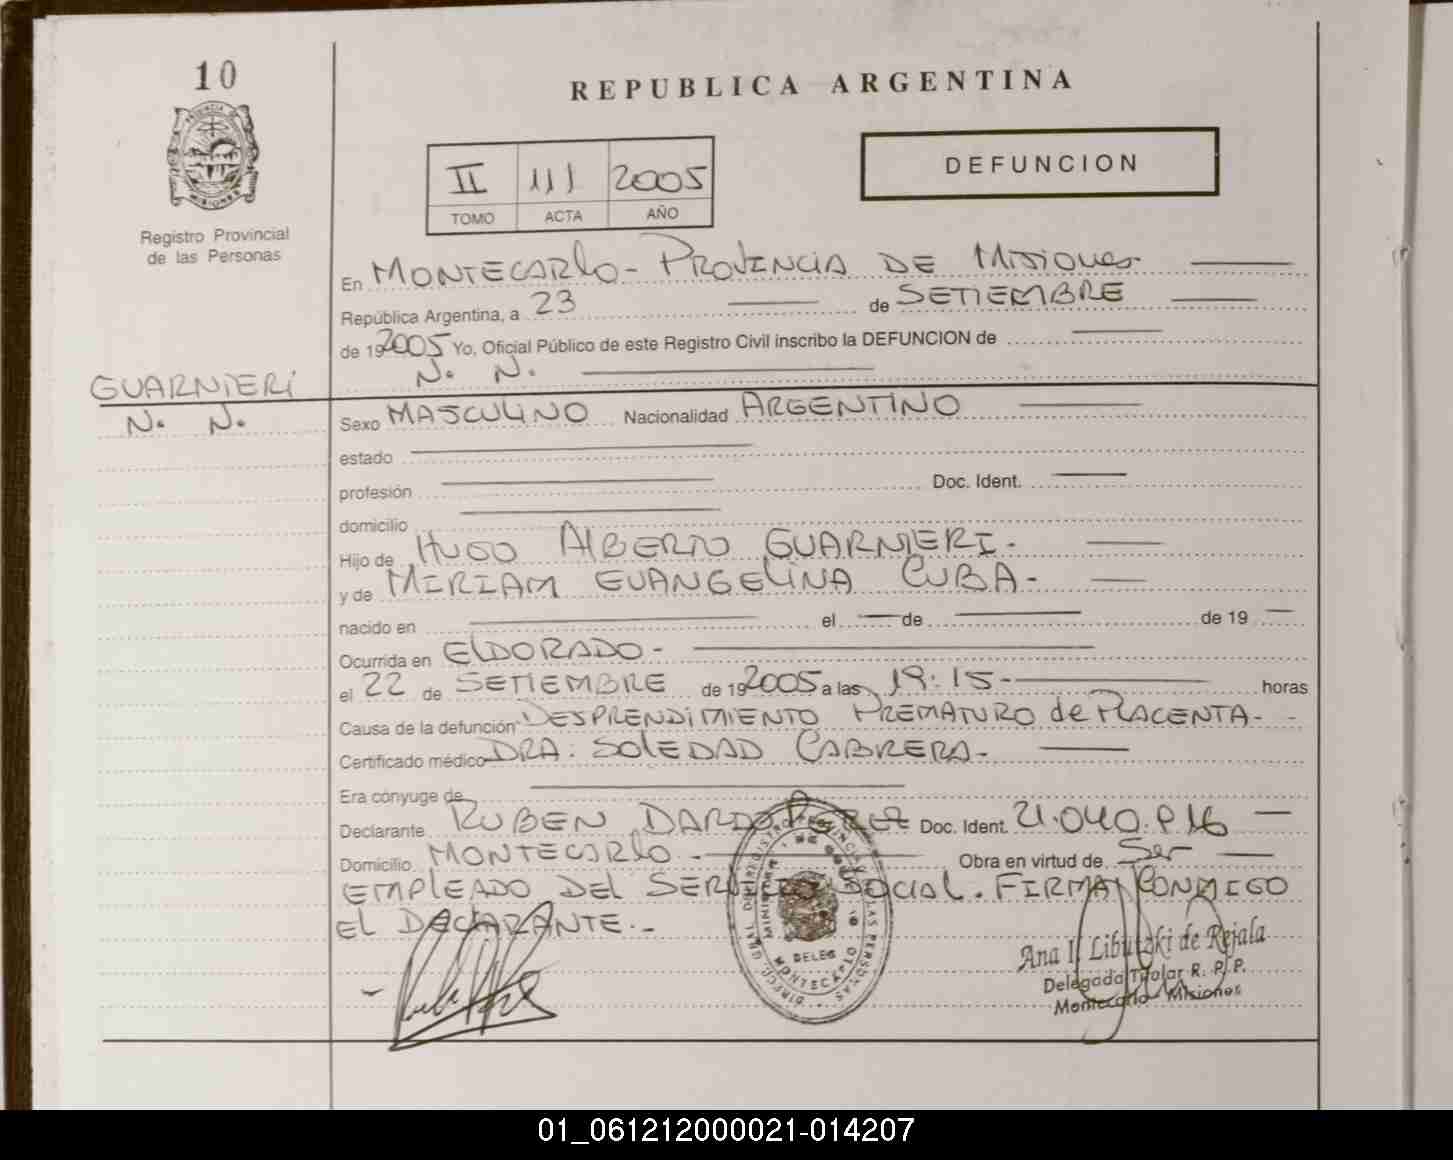 10
REPUBLICA ARGENTINA
PROVINCIA DE
MISIONES
Registro Provincial
de las Personas
II 111 2005
TOMO ACTA AÑO
DEFUNCION
En MONTECARLO - PROVINCIA DE MISIONES
República Argentina, a 23 de SETIEMBRE
de 192005 Yo, Oficial Público de este Registro Civil inscribo la DEFUNCION de
N. N.
GUARNIERI
N. N.
Sexo MASCULINO Nacionalidad ARGENTINO
estado
profesión Doc. Ident.
domicilio
Hijo de HUGO ALBERTO GUARNIERI.
y de MIRIAM EVANGELINA CUBA -
nacido en el de de 19
Ocurrida en ELDORADO -
el 22 de SETIEMBRE de 192005 a las 19:15 - horas
Causa de la defunción DESPRENDIMIENTO PREMATURO de PLACENTA -
Certificado médico DRA. SOLEDAD CABRERA -
Era cónyuge de
Declarante RUBEN DARDO Doc. Ident. 21.040.916
Domicilio MONTECARLO - Obra en virtud de Ser
EMPLEADO DEL SERVICIO SOCIAL. FIRMA CONMIGO
EL DECLARANTE. -
DELEG
MONTECARLO
Ana I. Libutzki de Rejala
Delegada Titular R. P. P.
Montecarlo - Misiones
01_061212000021-014207